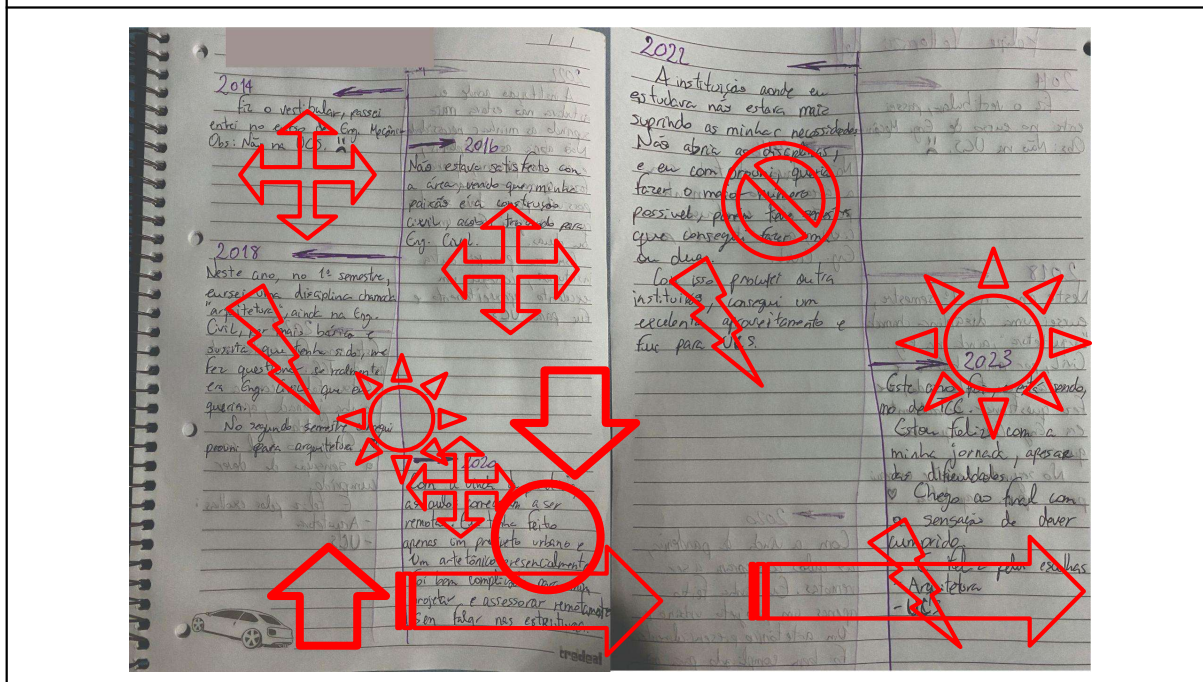 2014
Fiz o vestibular, passei
entei no curso de Eng. Mecânica
Obs: Não na UCS.
2016
Não estava satisfeito com
a área, vendo que minha
paixão era construção
civil, acabei trocando para
Eng. Civil.
2018
Neste ano, no 1º semestre,
cursei uma disciplina chamada
"arquitetura", ainda na Eng.
Civil, por mais básico e
que tenha sido, me
fez questionar se realmente
era Eng. Civil que eu
queria.
No segundo semestre consegui
prouni para arquitetura
2020
Com a vinda da
as aulas começaram a ser
remotas. Eu tinha feito
apenas um projeto urbano e
Um arquitetônico presencialmente
Foi bem complicado para
projetar e assessorar remotamente
Sem falar nas estruturas.
tredeal
2022
A instituição aonde eu
estudava não estava mais
suprindo as minhas necessidades
Não abria as disciplinas,
e eu com prouni, queria
fazer o maior número
possivel, porém teve semestres
que consegui fazer um
ou duas.
Com isso procurei outra
instituição, consegui um
excelente aproveitamento e
fui para UCS.
2023
Este ano foi, e está sendo,
ano de TCC.
Estou feliz com a
minha jornada, apesar
das dificuldades.
Chego ao final com
a sensação de dever
cumprido,
feliz pelas escolhas
Arquitetura
- UCS